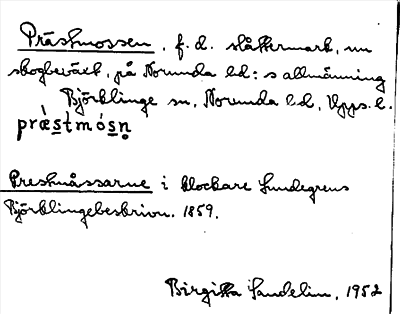 Prästmossen, f.d. slåttermark, nu
skogbeväxt, på Norunda hd:s allmänning
Björklinge sn, Norunda hd, Upps. l.
præ̀stmósn̥
Prestmåssarne i klockare Lundegrens
Björklingebeskrivn. 1859.
Birgitta Sandelin, 1952